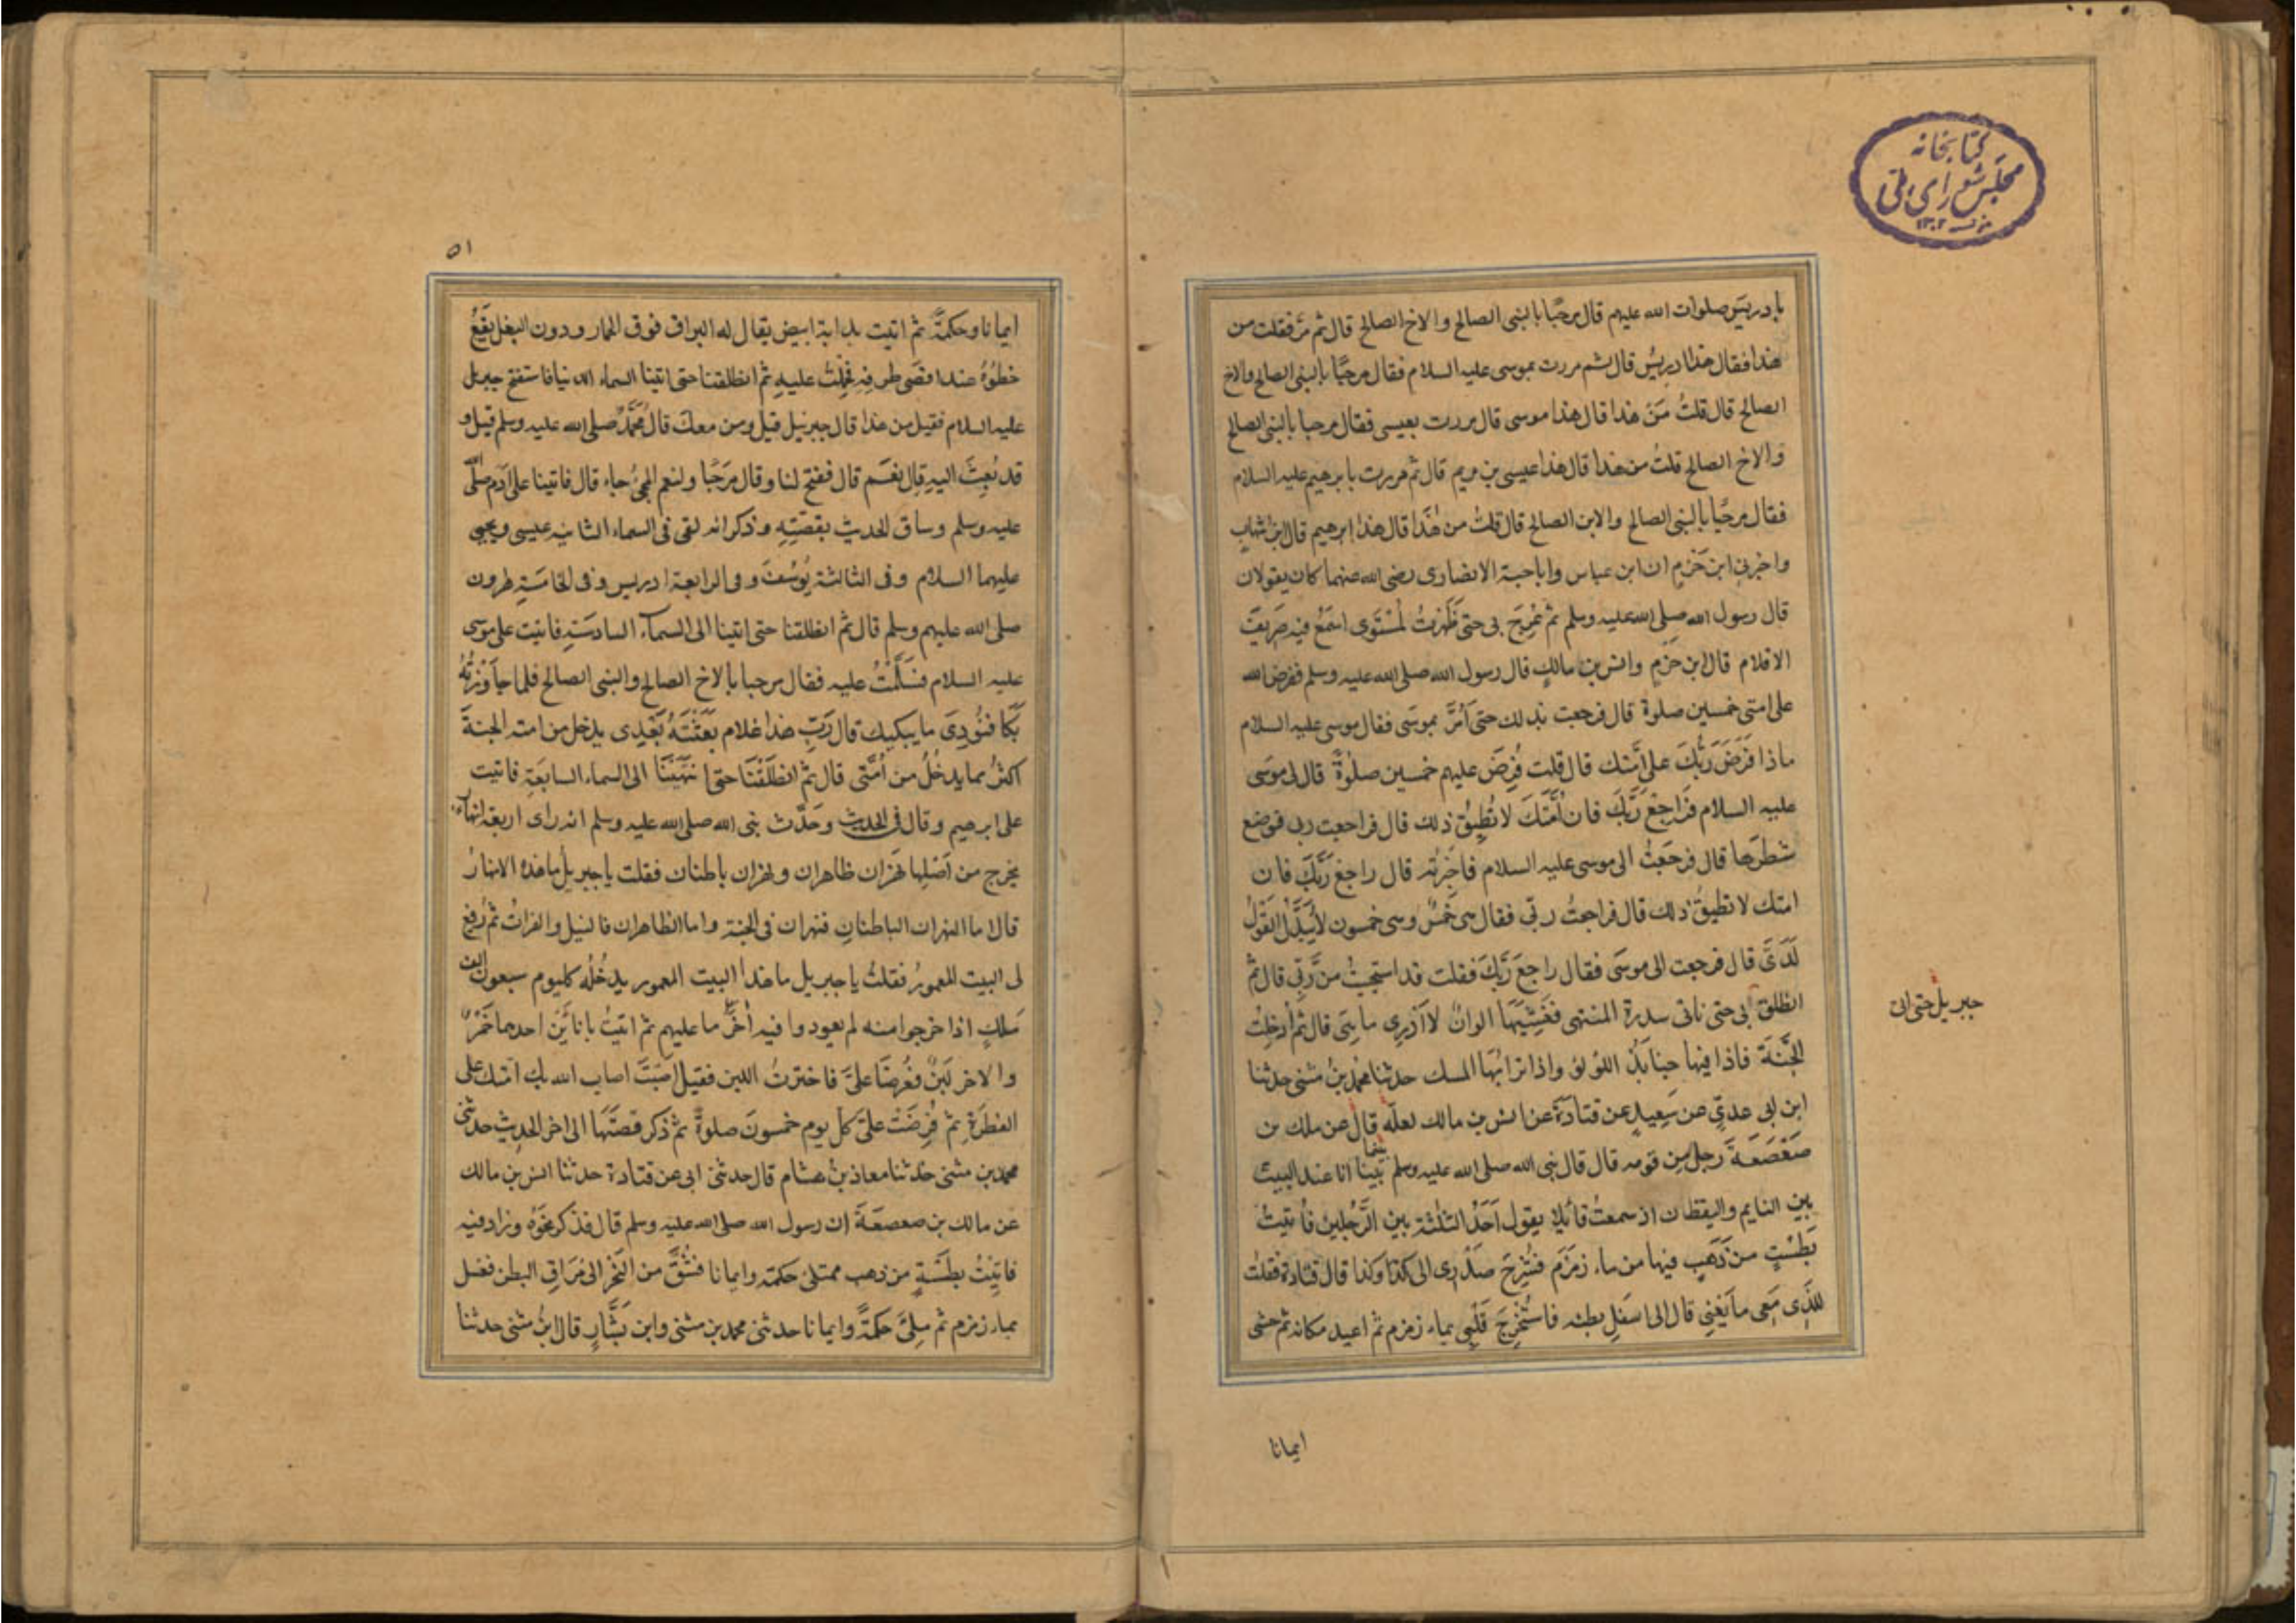 كتابخانه
مجلس شورای ملی
١٣٠٢
بإدريس صلوات الله عليهم قال مرحبًا بالنبى الصالح والاخ الصالح قال ثم مرّ فقلت من
هذا فقال هذا ادريسُ قال ثم مررت بموسى عليه السلام فقال مرحبًا بالنبى الصالح والاخ
الصالح قال قلتُ مَنْ هذا قال هذا موسى قال مررت بعيسى فقال مرحبا بالنبى الصالح
والاخ الصالح قلت من هذا قال هذا عيسى بن مريم قال ثم مررت بابرهيم عليه السلام
فقال مرحبًا بالنبى الصالح والابن الصالح قال قلتُ من هٰذَا قال هذا ابرهيم قال ابن شهابٍ
واخبرنى ابن حَزْمٍ ان ابن عباس واباحبة الانصارى رضى الله عنهما كان يقولان
قال رسول الله صلى الله عليه وسلم ثم عُرِجَ بى حتى ظَهَرْتُ لمُسْتَوى اسْمَعُ فيه صَرِيفَ
الاقلام قال ابن حَزْمٍ وانس بن مالكٍ قال رسول الله صلى الله عليه وسلم ففرض الله
على امتى خمسين صلوة قال فرجعت بذلك حتى اَمُرَّ بموسَى فقال موسى عليه السلام
ماذا فَرَضَ رَبُّكَ على اُمَّتِك قال قلت فُرِضَ عليهم خمسين صلوةً قال لى موسَى
عليه السلام فَرَاجِعْ رَبَّكَ فان اُمَّتَكَ لا تُطِيقُ ذلك قال فراجعت ربى فوضع
شَطْرَها قال فرجَعْتُ الى موسى عليه السلام فاخبَرْتُه قال راجِعْ رَبَّكَ فان
امتك لا تطيقُ ذلك قال فراجعتُ ربّى فقال هى خَمْسٌ وهى خمسون لا يُبَدَّلُ القَوْلُ
لَدَىَّ قال فرجعت الى موسَى فقال راجِعَ رَبَّكَ فقلت قد استحيَيْتُ من رَّبّى قال ثم
انطلق بى حتى ناتى سدرة المنتهى فغَشِيَهَا الوانٌ لا اَدْرِى ما هِىَ قال ثم اُدْخِلْتُ
جبريل حتى اتى
الجَنَّةَ فاذا فيها جنابَذُ اللؤلؤ واذا ترابُها المسك حدثنا محمد بنُ مثنى حدثنا
ابن ابى عدىّ عن سَعِيدٍ عن قتادَةَ عن انس بن مالك لعلّه قال عن ملك بن
صَعْصَعَةَ رَجلٍ من قومه قال قال نبى الله صلى الله عليه وسلم بَيْنا انا عند البيت
بينما
بين النايم واليقظان اذ سمعتُ قائلا يقول اَحَدُ الثلٰثة بين الرَّجُلين فاُتيتُ
بَطَسْتٍ من ذَهَبٍ فيها من ماء زمزم فَشُرِحَ صَدْرى الى كذا وكذا قال قتادة فقلت
للّذى مَعِى ما يَعْنِى قال الى اسفَلِ بطنه فاسْتُخْرِجَ قَلْبِى بماء زمزم ثم اعيد مكانه ثم حشى
ايمانا
٥١
ايمانا وحكمةً ثم اتيت بدابة ابيض يقال له البراق فوق الحمار ودون البغل يَقَعُ
خطوُهُ عند اقصى طرفه فحُمِلتُ عليهِ ثم انطلقنا حتى اتينا السماء الدنيا فاستفتح جبريل
عليه السلام فقيل من هذا قال جبرئيل قيل ومن معك قال مُحَمَّدٌ صلى الله عليه وسلم قيل و
قد بُعِثَ اليهِ قال نعَم قال ففتح لنا وقال مَرْحَبًا ولنعم المجئُ جاء قال فاتينا على اٰدَم صلى الله
عليه وسلم وساق الحديث بقصّتِهِ وذكر انه لقى فى السماء الثانيه عيسى ويحيى
عليهما السلام وفى الثالثة يُوسُفَ وفى الرابعة ادريس وفى الخامسَةِ هرون
صلى الله عليهم وسلم قال ثم انطلقنا حتى اتينا الى السماء السادسَةِ فاتيت على موسى
عليه السلام فسَلَّمْتُ عليه فقال مرحبا بالاخ الصالح والنبى الصالح فلما جاوَزْتُهُ
بَكا فنُودِىَ ما يبكيك قال رَبِّ هذا غلام بَعَثْتَهُ بَعْدِى يدخل من امته الجنةَ
اكثرُ مما يدخُلُ من اُمَّتى قال ثم انطلَقْنَا حتى انتهَيْنَا الى السماء السابعَةِ فاتيت
على ابرهيم وقال فى الحديث وحَدَّث نبى الله صلى الله عليه وسلم انه راى اربعة انهار
يخرج من اَصْلِها نهران ظاهران ونهران باطنان فقلت يا جبريلُ ما هذه الانهارُ
قال اما النهران الباطنانِ فنهران فى الجنة واما الظاهران فالنيل والفراتُ ثم رُفِعَ
لى البيت المعمورُ فقلتُ يا جبريل ما هذا البيت المعمور يدخُلُه كل يوم سبعون الف
مَلَكٍ اذا خرجوا منه لم يعودوا فيه اٰخرُ ما عليهم ثم اتيتُ باناءَيْنِ احدهما خَمْرٌ
والاخر لَبَنٌ فعُرِضَا علىَّ فاخترتُ اللبن فقيل اَصَبْتَ اصاب الله بك امتك على
الفطرَةِ ثم فُرِضَتْ علىَّ كل يوم خمسونَ صلوةً ثم ذكر قصتَها الى اخر الحديث حدثنى
محمد بن مثنى حدثنا معاذ بنُ هشام قال حدثنى ابى عن قتادة حدثنا انس بن مالك
عن مالك بن صعصعَةَ ان رسول الله صلى الله عليه وسلم قال فذكر نحوَهُ وزاد فيه
فاُتِيْتُ بطَسْةٍ من ذهب ممتلئ حكمة وايمانا فشُقَّ من النَّحْرِ الى مَرَاقِ البطن فغسل
بماء زمزم ثم مُلِئَ حكمةً وايمانا حدثنى محمد بن مثنى وابن بَشَّارٍ قال ابنُ مثنى حدثنا